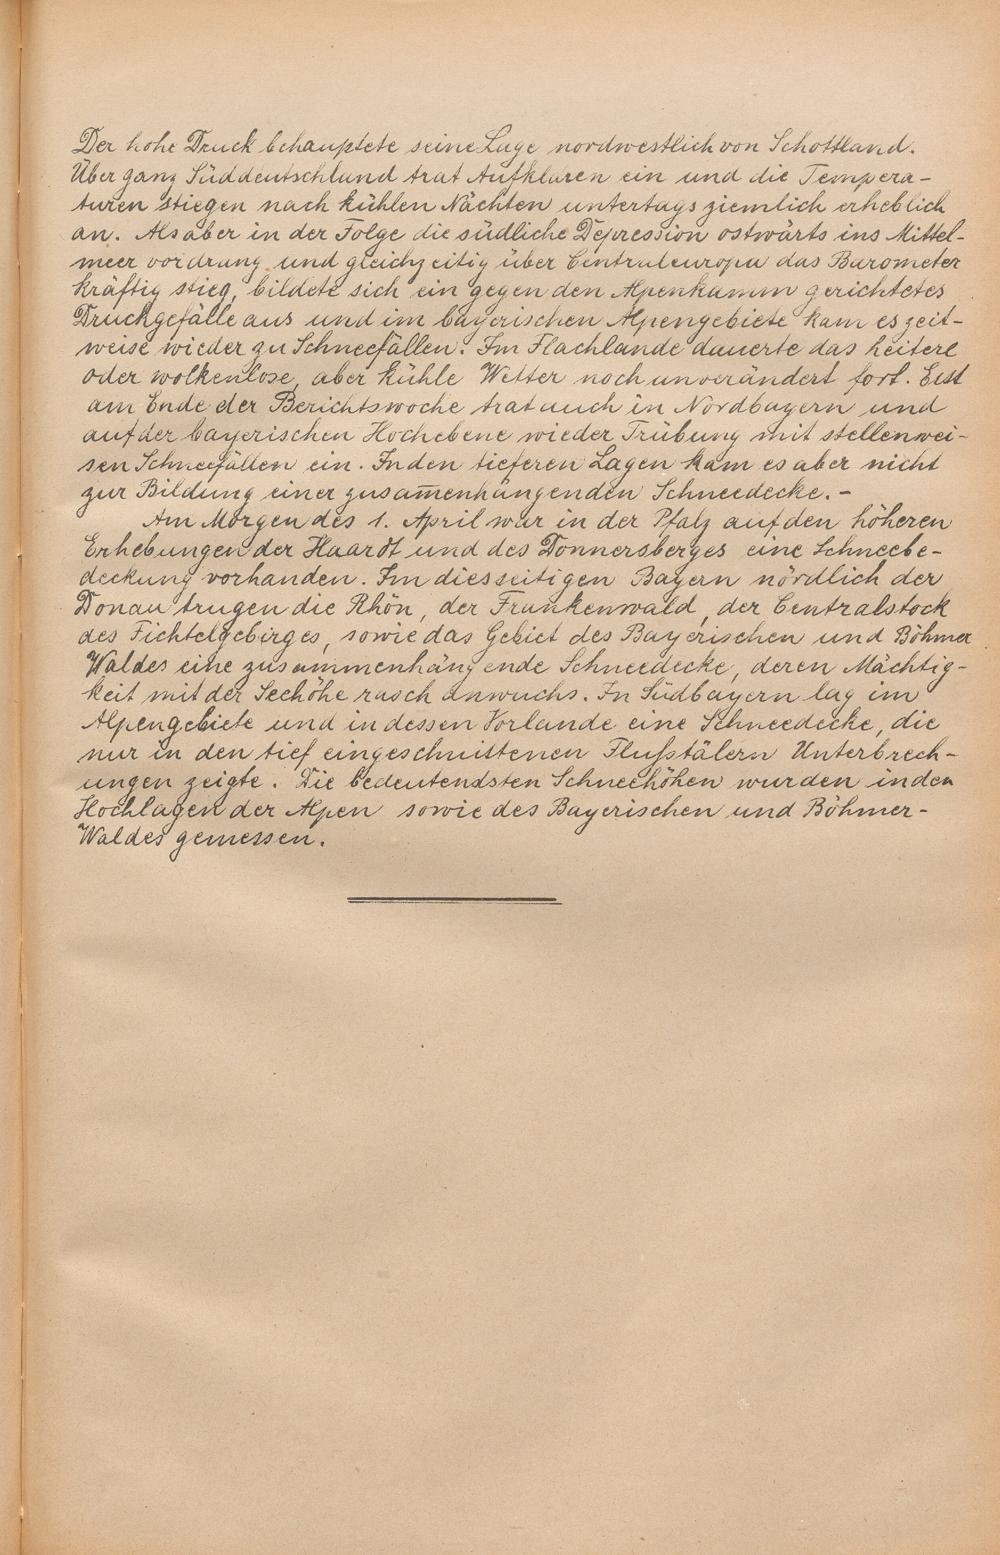 Der hohe Druck behauptete seine Lage nordwestlich von Schottland.
Über ganz Süddeutschland trat Aufklaren ein und die Tempera-
turen stiegen nach kühlen Nächten untertags ziemlich erheblich
an. Als aber in der Folge die südliche Depression ostwärts ins Mittel-
meer vordrang und gleichzeitig über Centraleuropa das Barometer
kräftig stieg, bildete sich ein gegen den Alpenkamm gerichtetes
Druckgefälle aus und im bayerischen Alpengebiete kam es zeit-
weise wieder zu Schneefällen. Im Flachlande dauerte das heitere
oder wolkenlose, aber kühle Wetter noch unverändert fort. Erst
am Ende der Berichtswoche trat auch in Nordbayern und
auf der bayerischen Hochebene wieder Trübung mit stellenwei-
sen Schneefällen ein. In den tieferen Lagen kam es aber nicht
zur Bildung einer zusam̅enhängenden Schneedecke. -
Am Morgen des 1. April war in der Pfalz auf den höheren
Erhebungen der Haardt und des Donnersberges eine Schneebe-
deckung vorhanden. Im diesseitigen Bayern nördlich der
Donau trugen die Rhön, der Frankenwald, der Centralstock
des Fichtelgebirges, sowie das Gebiet des Bayerischen und Böhmer
Waldes eine zusammenhängende Schneedecke, deren Mächtig-
keit mit der Seehöhe rasch anwuchs. In Südbayern lag im
Alpengebiete und in dessen Vorlande eine Schneedecke, die
nur in den tief eingeschnittenen Flußtälern Unterbrech-
ungen zeigte. Die bedeutendsten Schneehöhen wurden in den
Hochlagen der Alpen sowie des Bayerischen und Böhmer-
Waldes gemessen.